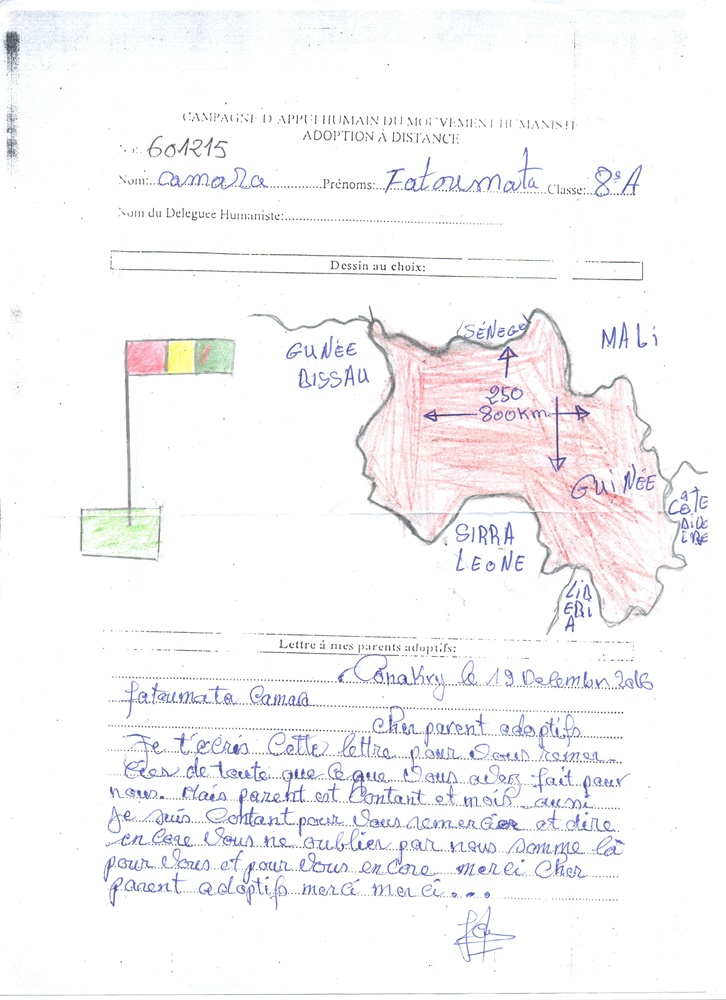 CAMPAGNE D'APPUI HUMAIN DU MOUVEMENT HUMANISTE
ADOPTION À DISTANCE
No: 601215
Nom: Camara Prénoms: Fatoumata Classe: 8e A
Nom du Deleguee Humaniste:
Dessin au choix:
GUNÉE
BISSAU
SÉNEGE
MALi
250
800km
GUiNÉE
CôTE
DiDO
IRE
SIRRA
LEONE
LiB
ERi
A
Lettre á mes parents adoptifs:
Conakry le 19 Decembre 2016
fatoumata Camara
Cher parent adoptifs
Je t'écris Cette lettre pour vous remer-
cier de toute que ce que vous avez fait pour
nous. Mais parent est Contant et mois aussi
Je suis Contant pour vous remercier et dire
encore vous ne oublier par nous somme là
pour vous et pour vous encore merci Cher
parent adoptifs merci merci...